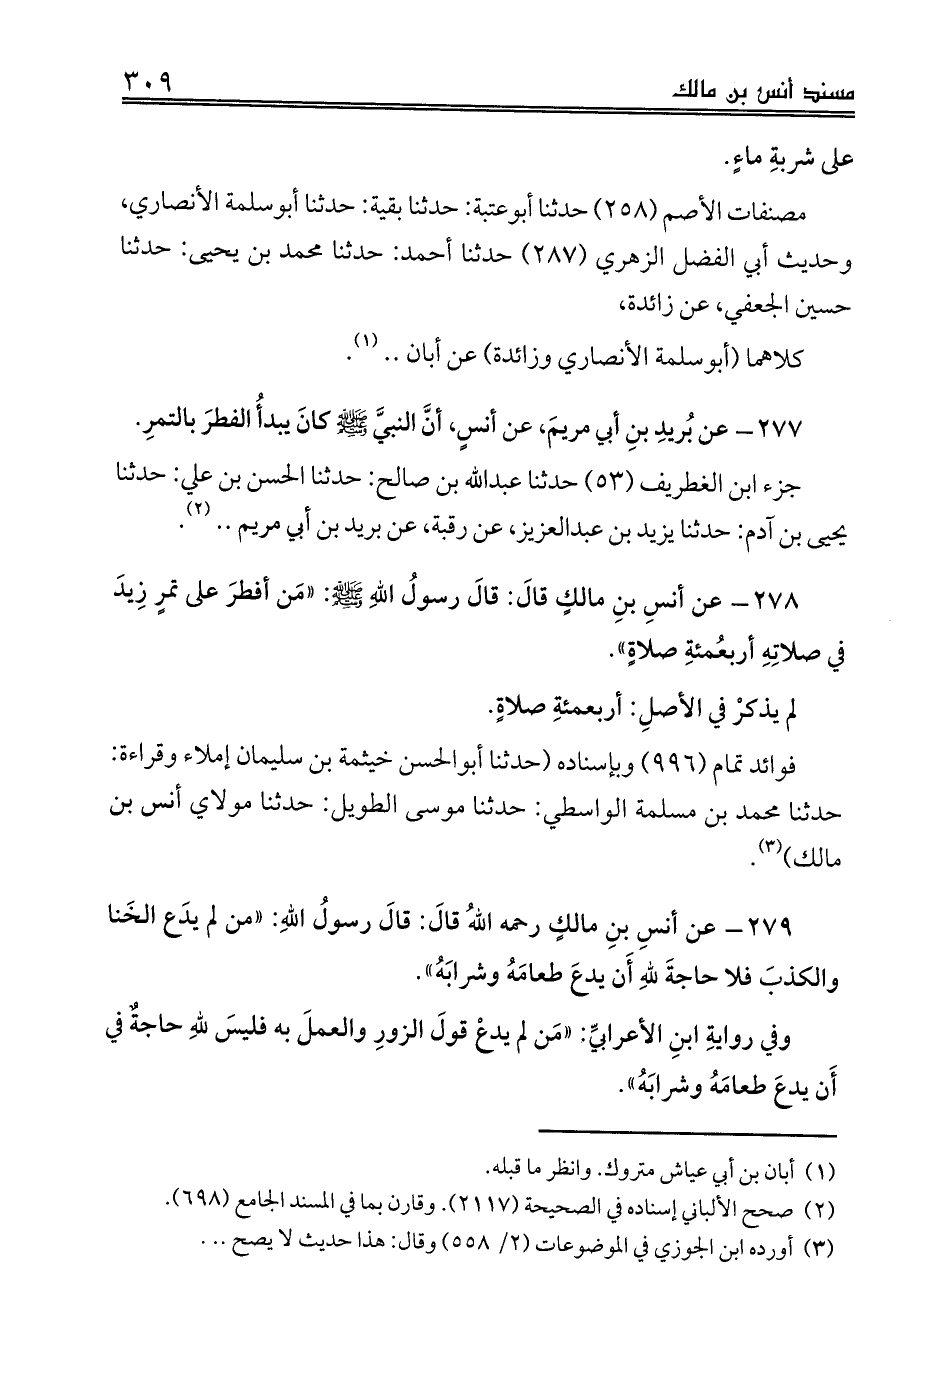 مسند أنس بن مالك ٣٠٩
على شربةِ ماءٍ.
مصنفات الأصم (٢٥٨) حدثنا أبوعتبة: حدثنا بقية: حدثنا أبوسلمة الأنصاري،
وحديث أبي الفضل الزهري (٢٨٧) حدثنا أحمد: حدثنا محمد بن يحيى: حدثنا
حسين الجعفي، عن زائدة،
كلاهما (أبوسلمة الأنصاري وزائدة) عن أبان .. (١).
٢٧٧ – عن بُريدِ بنِ أبي مريمَ، عن أنسٍ، أنَّ النبيَّ ﷺ كانَ يبدأُ الفطرَ بالتمرِ.
جزء ابن الغطريف (٥٣) حدثنا عبدالله بن صالح: حدثنا الحسن بن علي: حدثنا
يحيى بن آدم: حدثنا يزيد بن عبدالعزيز، عن رقبة، عن بريد بن أبي مريم .. (٢).
٢٧٨ – عن أنسِ بنِ مالكٍ قالَ: قالَ رسولُ اللهِ ﷺ: «مَن أفطرَ على تمرٍ زِيدَ
في صلاتِهِ أربعُمئةِ صلاةٍ».
لم يذكرْ في الأصلِ: أربعمئةِ صلاةٍ.
فوائد تمام (٩٩٦) وبإسناده (حدثنا أبوالحسن خيثمة بن سليمان إملاء وقراءة:
حدثنا محمد بن مسلمة الواسطي: حدثنا موسى الطويل: حدثنا مولاي أنس بن
مالك)(٣).
٢٧٩ – عن أنسِ بنِ مالكٍ رحمه اللهُ قالَ: قالَ رسولُ اللهِ: «من لم يدَع الخَنا
والكذبَ فلا حاجةَ للهِ أَن يدعَ طعامَهُ وشرابَهُ».
وفي روايةِ ابنِ الأعرابيِّ: «مَن لم يدعْ قولَ الزورِ والعملَ به فليسَ للهِ حاجةٌ في
أَن يدعَ طعامَهُ وشرابَهُ».
(١) أبان بن أبي عياش متروك. وانظر ما قبله.
(٢) صحح الألباني إسناده في الصحيحة (٢١١٧). وقارن بما في المسند الجامع (٦٩٨).
(٣) أورده ابن الجوزي في الموضوعات (٢/ ٥٥٨) وقال: هذا حديث لا يصح ...